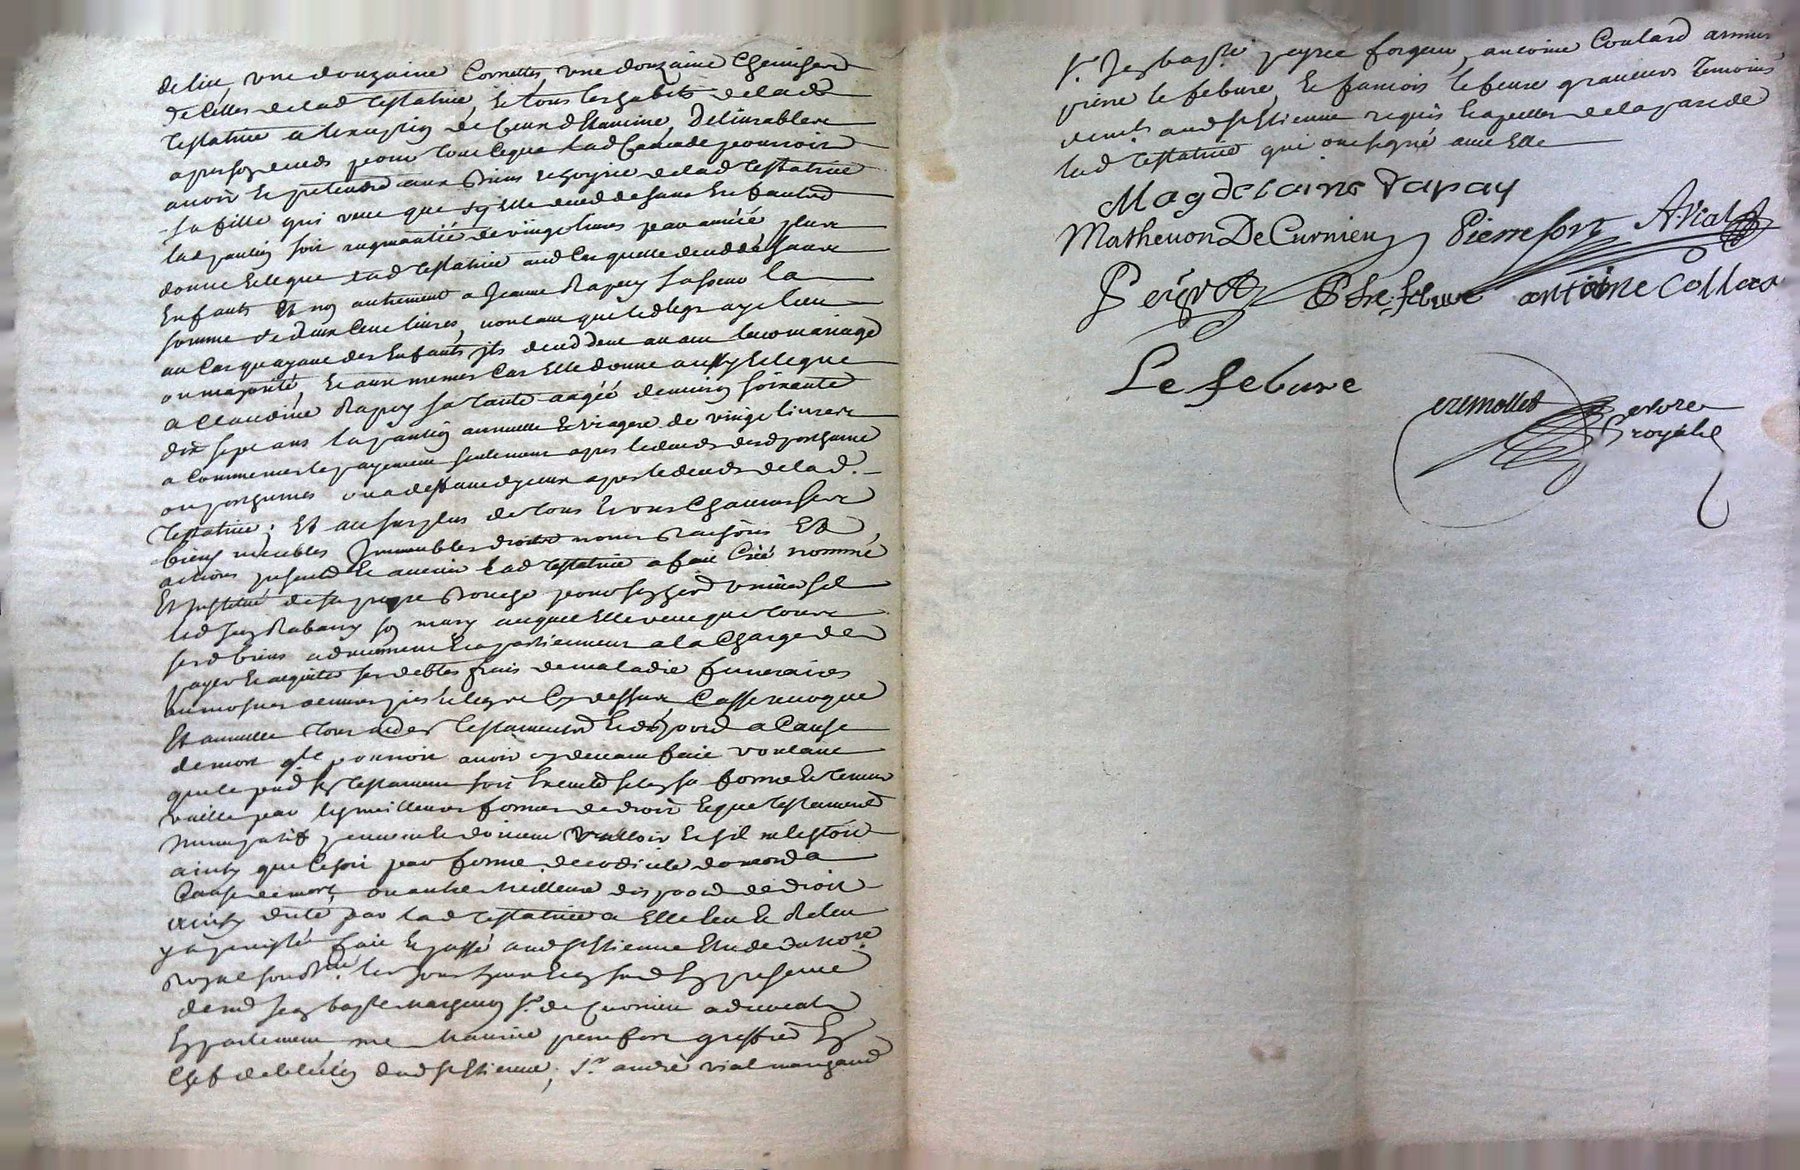 de lict, une douzaine Cornettes, une douzaine Chemises
de Celles de lad testatrice, Et tous les habits de lad
testatrice a de Delivrables
apres deceds pour tout ce que lad pourroit
avoir Et pretendre aux Biens de lad Testatrice
sa fille qui veut que sy Elle deced de sans Enfants
lad pantion soit augmantée de vingt livres par année plus
donne Et legue lad testatrice aud Cas quelle deced de sans
Enfants Et non autrement a Jeanne Rapay sa soeur la
somme de deux Cent livres, voulant que led legs aye lieu
au Cas quayant des Enfants ils decedent avant leur mariage
ou majorité, Et aux memes Cas Elle donne aussy Et legue
a Claudine Rapay sa tante aagée denviron soixante
dix sept ans la pantion annuelle Et viagere de vingt livres
a Commencer le payement seulement apres le deceds desd posthume
ou posthumes ou a deffaut apres le deceds de lad.
Testatrice; Et au surplus de tous Et uns Chacuns ses
biens meubles Immeubles droits noms Raisons Et
actions presents Et avenir lad testatrice a fait Créé nommé
Et Institué de sa propre Bouche pour son her universel
led Jean Rabany son mary auquel Elle veut que tous
sesd biens adviennent Et apartiennent a la Charge de
payer Et acquiter ses debtes frais de maladie funeraires
aumosnes oeuvres pies Et legs Cy dessus, Casse revoque
Et annulle tous autres testaments Et dispoon a Cause
de mort qlle pourroit avoir cy devant fait voulant
que le pnt son testament soit Executé selon sa forme Et teneur
vaille par les meilleures formes de droit Et que testament
nuncupatif peuvent Et doivent valloir Et sil ne lestoit
ainsy que Ce soit par forme de codicile donaon a
Cause de mort, ou autre meilleure dispoon de droit
ainsy dicté par lad testatrice a Elle leu Et Releu
y a persisté fait Et passé aud St Estienne Etude du nore
Royal les jour En presence
de me Jean bapte Mathevon Sr. de Curnieu advocat
En parlement me Maurice pierrefort greffier En
Chef de lelection dud St Estienne, Sr. andré vial marchand
Sr. Jean bapte peyret forgeur, antoine Coulard armur
pierre lefebure, Et francois lefebure graveurs Temoins
demts aud St Estienne requis Et apelles de la part de
lad Testatrice qui ont signé avec Elle
Magdelaine Rapay
Mathevon De Curnieu Pierrefort A. Vial
Peÿret P lefebure antoine Collard
Le febure
cremollet nore
royal